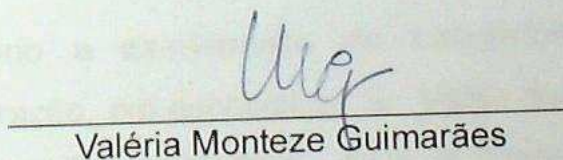 Valéria Monteze Guimarães